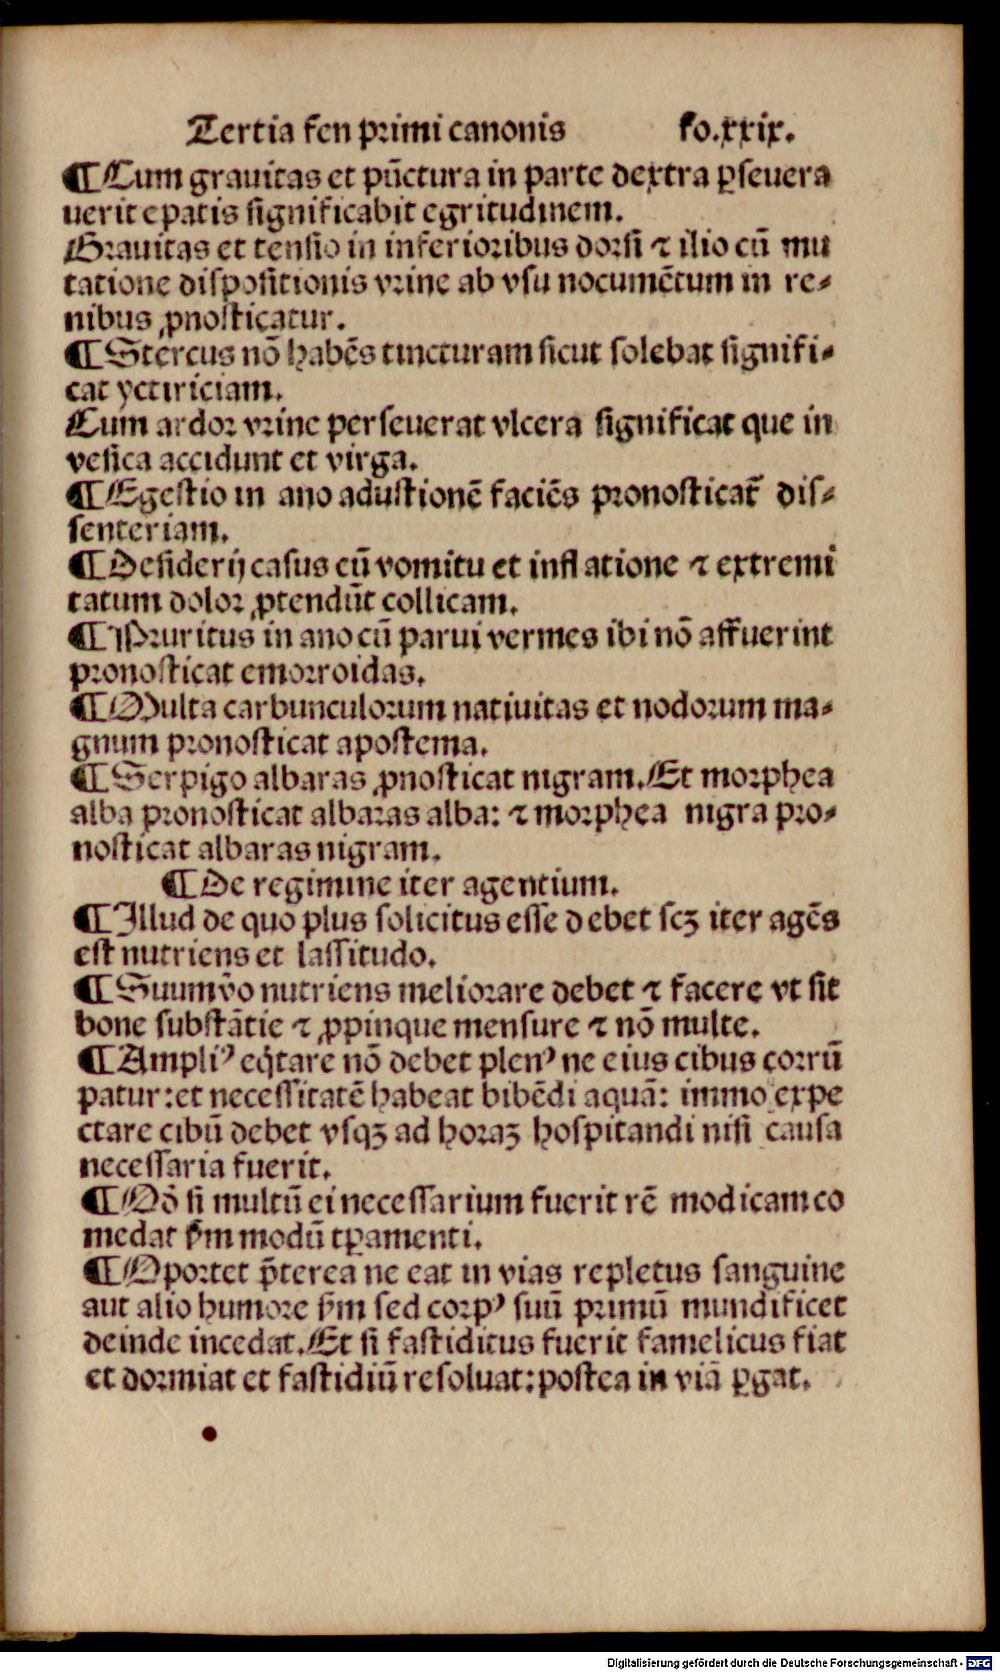 Tertia fen primi canonis fo.xxix.
¶Cum grauitas et pūctura in parte dextra ꝑseuera
uerit epatis significabit egritudinem.
Grauitas et tensio in inferioribus dorsi ⁊ ilio cū mu
tatione dispositionis vrine ab vsu nocumētum in re⸗
nibus ꝓnosticatur.
¶Stercus nō habēs tincturam sicut solebat signifi⸗
cat yctiriciam.
Cum ardor vrine perseuerat vlcera significat que in
vesica accidunt et virga.
¶Egestio in ano adustionē faciēs pronosticat̄ dis⸗
senteriam.
¶Desiderij casus cū vomitu et inflatione ⁊ extremi
tatum dolor ꝓtendūt collicam.
¶Pruritus in ano cū parui vermes ibi nō affuerint
pronosticat emorroidas.
¶Multa carbunculorum natiuitas et nodorum ma⸗
gnum pronosticat apostema.
¶Serpigo albaras ꝓnosticat nigram.Et morphea
alba pronosticat albaras alba: ⁊ morphea nigra pro⸗
nosticat albaras nigram.
¶De regimine iter agentium.
¶Illud de quo plus solicitus esse debet scꝫ iter agēs
est nutriens et lassitudo.
¶Suum v̄o nutriens meliorare debet ⁊ facere vt sit
bone substātie ⁊ ꝓpinque mensure ⁊ nō multe.
¶Ampliꝰ eq̇tare nō debet plenꝰ ne eius cibus corrū
patur:et necessitatē habeat bibēdi aquā: immo expe
ctare cibū debet vsqꝫ ad horaꝫ hospitandi nisi causa
necessaria fuerit.
¶Qȯ si multū ei necessarium fuerit rē modicam co
medat ẜm modū tꝑamenti.
¶Oportet p̄terea ne eat in vias repletus sanguine
aut alio humore ẜm sed corpꝰ suū primū mundificet
deinde incedat.Et si fastiditus fuerit famelicus fiat
et dormiat et fastidiū resoluat:postea in viā ꝑgat.
Digitalisierung gefördert durch die Deutsche Forschungsgemeinschaft - DFG